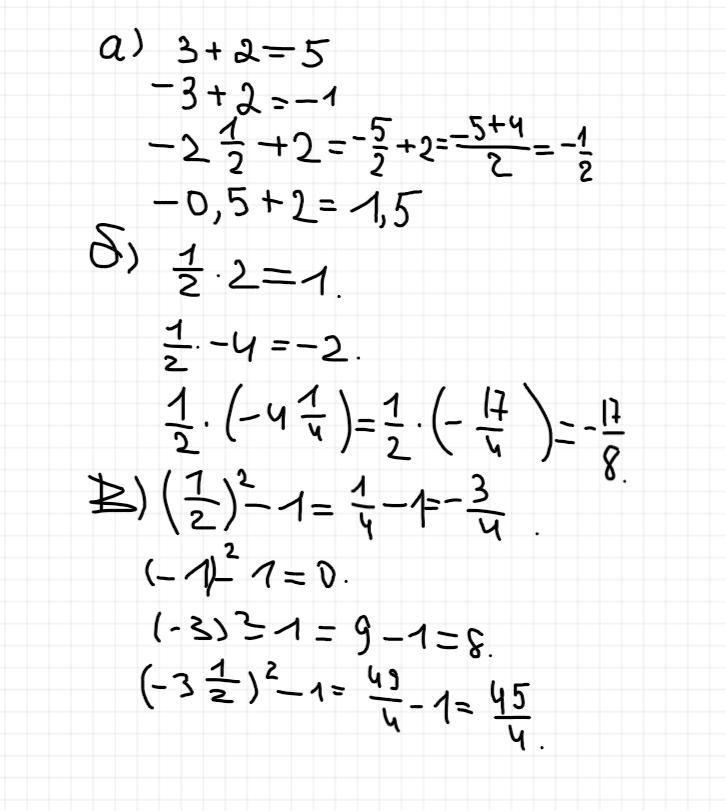 а) 3 + 2 = 5
-3 + 2 = -1
-2 1/2 + 2 = -5/2 + 2 = (-5+4)/2 = -1/2
-0,5 + 2 = 1,5
б) 1/2 · 2 = 1.
1/2 · -4 = -2.
1/2 · (-4 1/4) = 1/2 · (-17/4) = -17/8.
В) (1/2)² - 1 = 1/4 - 1 = -3/4.
(-1)² - 1 = 0.
(-3)² - 1 = 9 - 1 = 8.
(-3 1/2)² - 1 = 49/4 - 1 = 45/4.